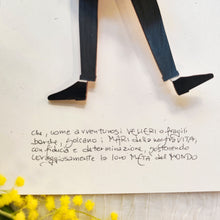 che, come avventurosi VELIERI o fragili
barche, solcano i MARI della nostra VITA,
con fiducia e determinazione, sostenendo
coraggiosamente la loro META del MONDO